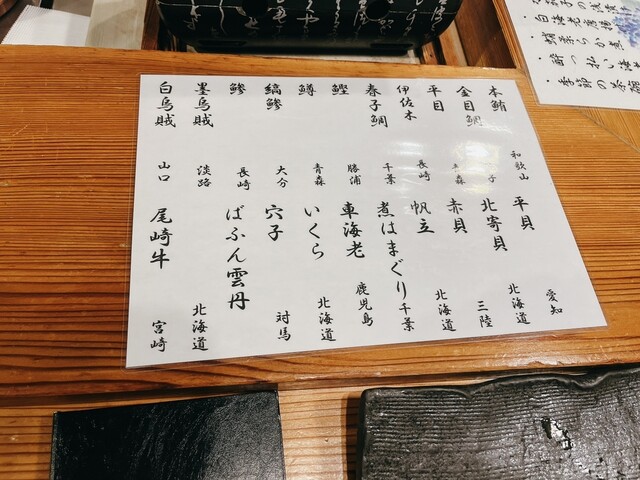 本鮪 和歌山
金目鯛 子
平目 青森
伊佐木 長崎
春子鯛 千葉
鰹 勝浦
鱒 青森
縞鯵 大分
鯵 長崎
墨烏賊 淡路
白烏賊 山口
平貝 愛知
北寄貝 北海道
赤貝 三陸
帆立 北海道
煮はまぐり 千葉
車海老 鹿児島
いくら 北海道
穴子 対馬
ばふん雲丹 北海道
尾崎牛 宮崎
・季節の茶碗